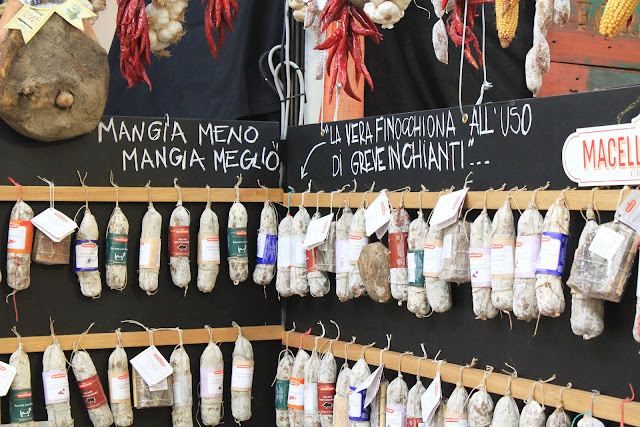 MANGIA MENO
MANGIA MEGLIO
"LA VERA FINOCCHIONA "ALL'USO
DI GREVE IN CHIANTI"...
MACELL